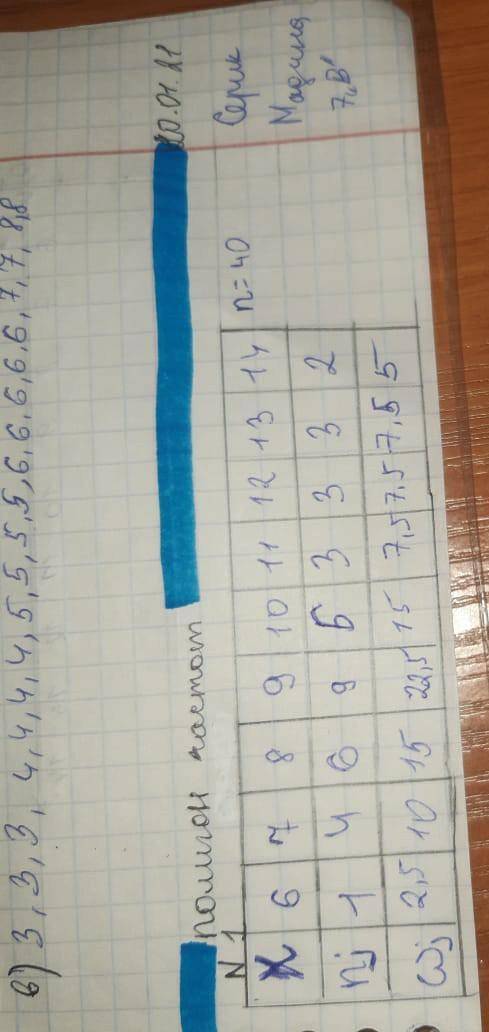 в) 3, 3, 3, 4, 4, 4, 4, 5, 5, 5, 5, 5, 6, 6, 6, 6, 6, 6, 7, 7, 8, 8
20.01.21
полигон частот
Серик
Мадина
7 „В"
N 1
X 6 7 8 9 10 11 12 13 14 n=40
nj 1 4 6 9 6 3 3 3 2
ωj 2,5 10 15 22,5 15 7,5 7,5 7,5 5